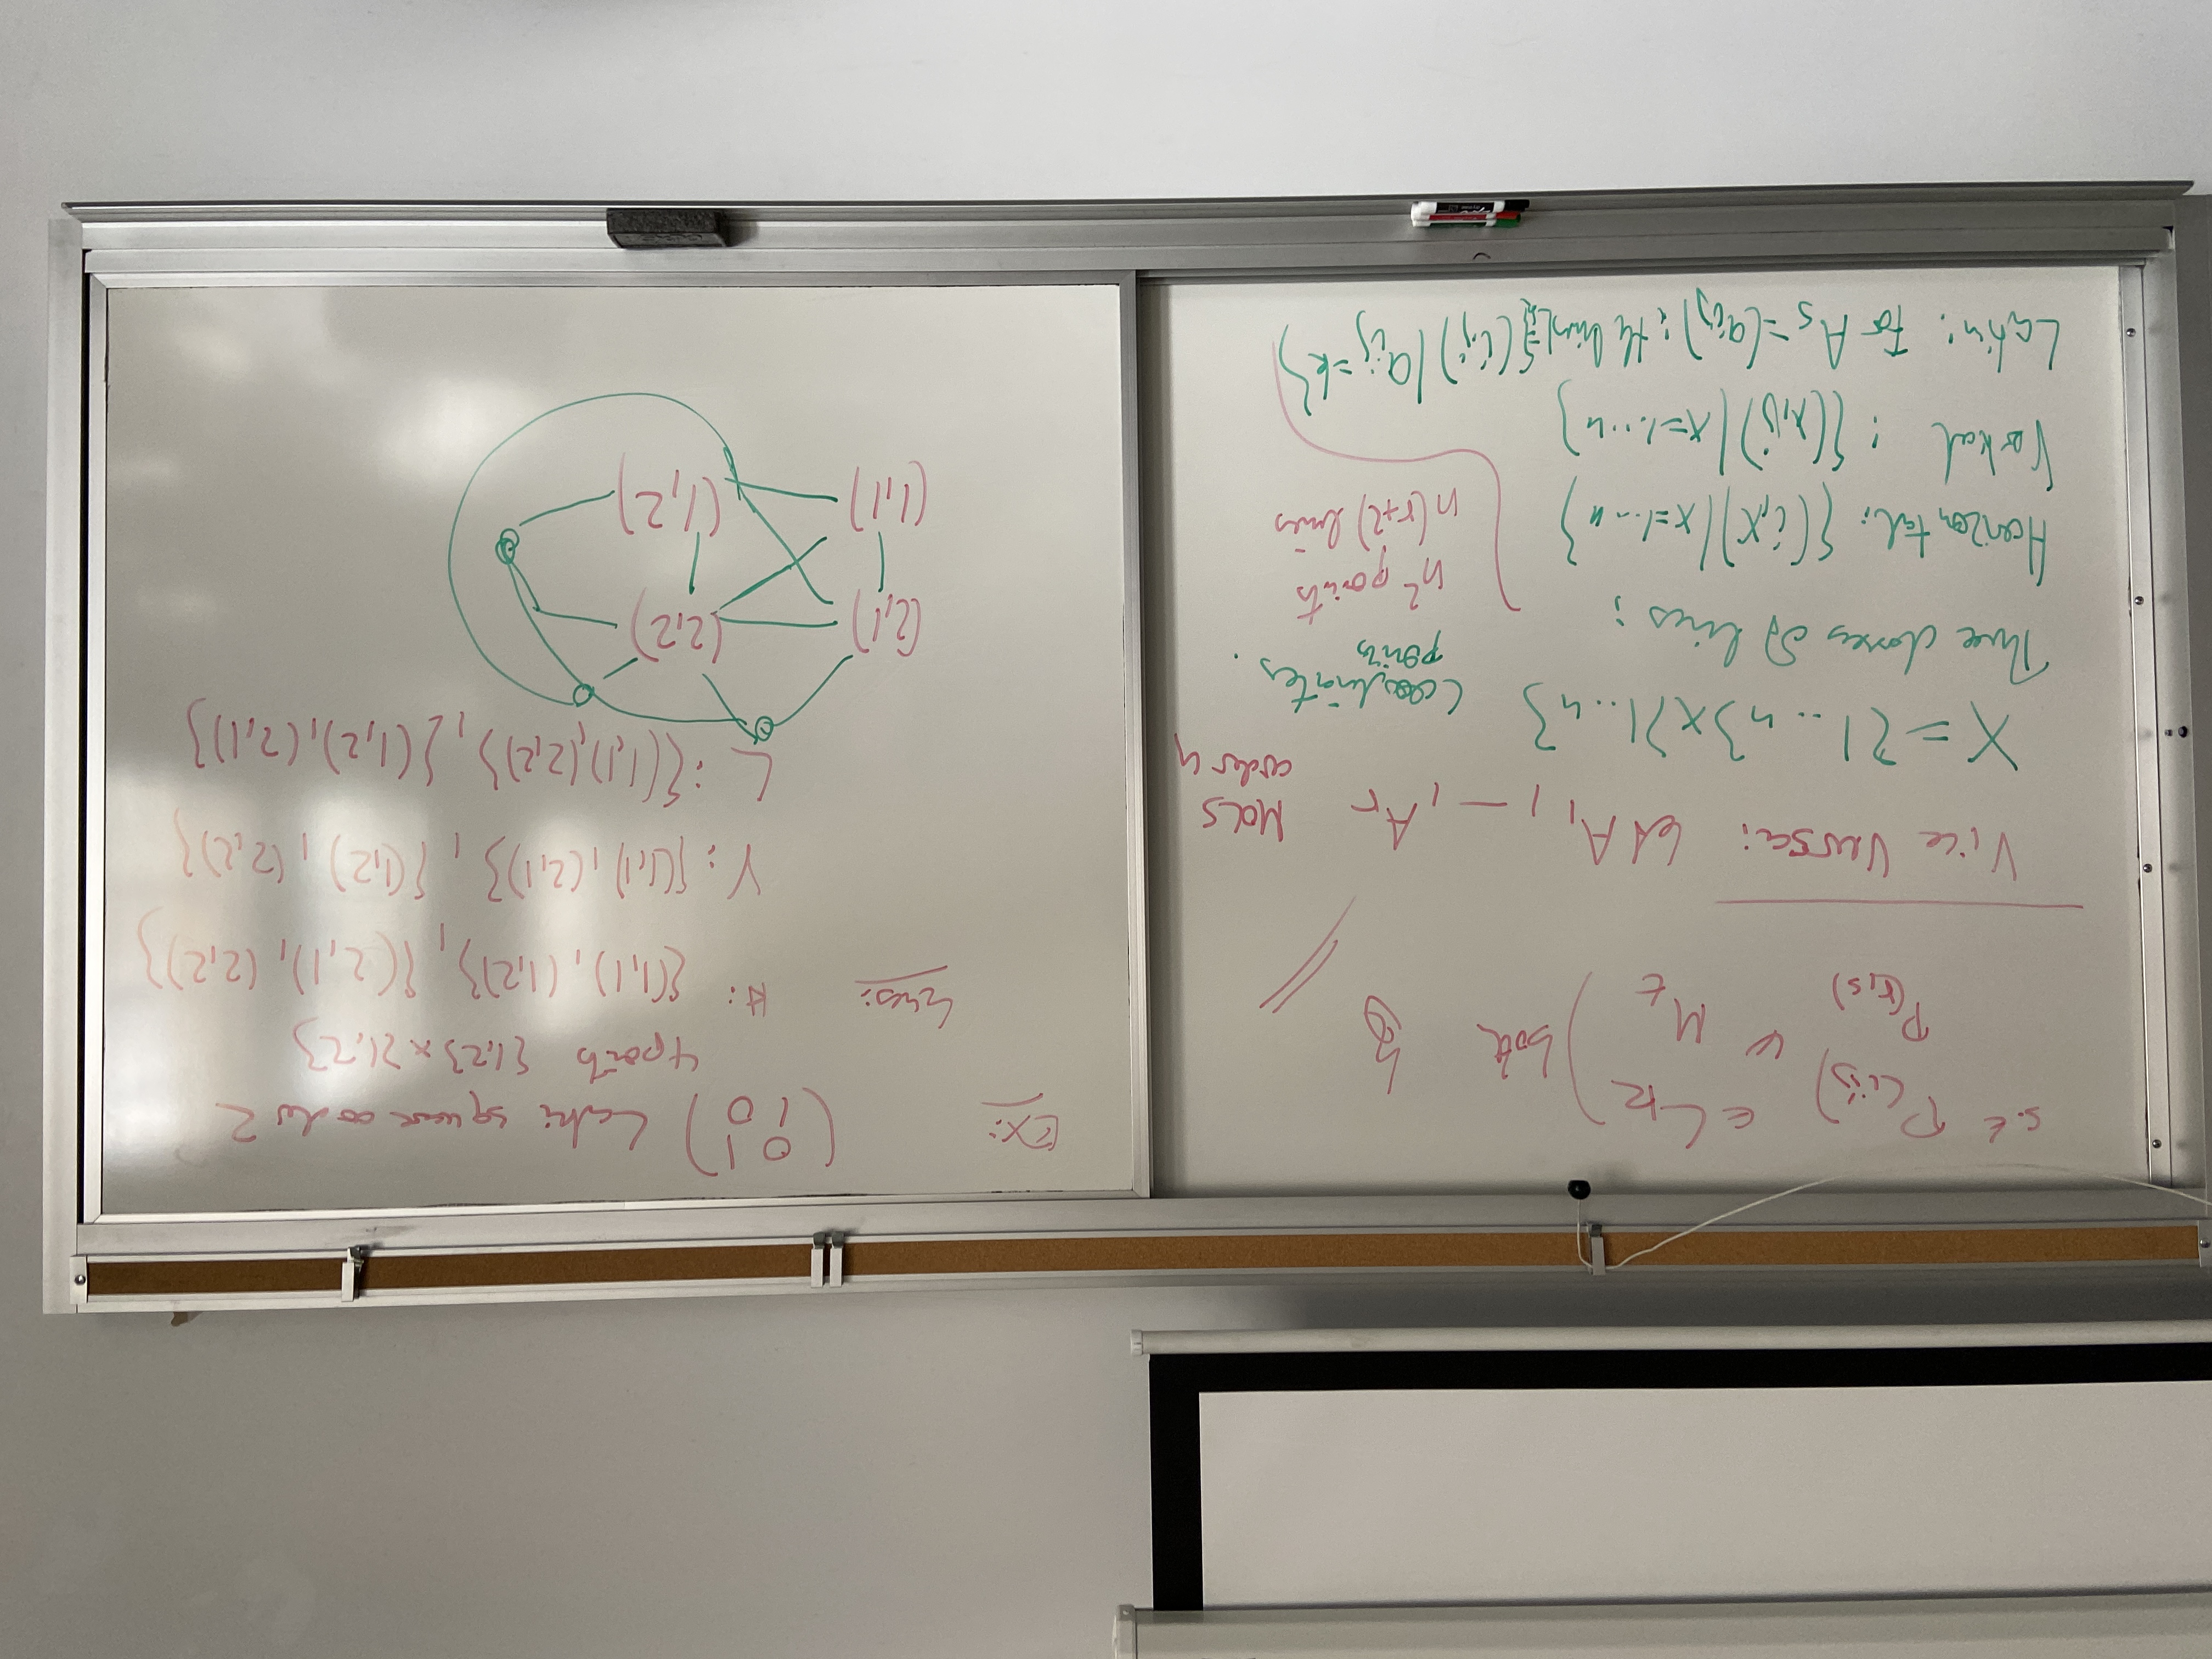 s.t P(i,j) ∈ L_k
P(r,s) ∈ M_t
both
Vice Versa: let A₁, –, Aᵣ MOLS order n
X = {1...n}×{1...n} Coordinates. points
Three classes of lines:
Horizontal: {(i,x) | x=1...n}
Vertical : {(x,j) | x=1...n}
Latin: for A_s = (a_ij) : the lines L_k = {(i,j) | a_ij = k}
n² points
n(r+2) lines
Ex: (0 1
1 0) Latin square order 2
4 points {1,2} × {1,2}
Lines: H: {(1,1), (1,2)}, {(2,1), (2,2)}
V: {(1,1), (2,1)}, {(1,2), (2,2)}
L: {(1,1),(2,2)}, {(1,2),(2,1)}
(2,1) (2,2)
(1,1) (1,2)